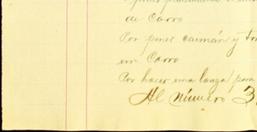 de Carro
Por poner caimán y
en Carro
Por hacer una lanza para
Al número 3